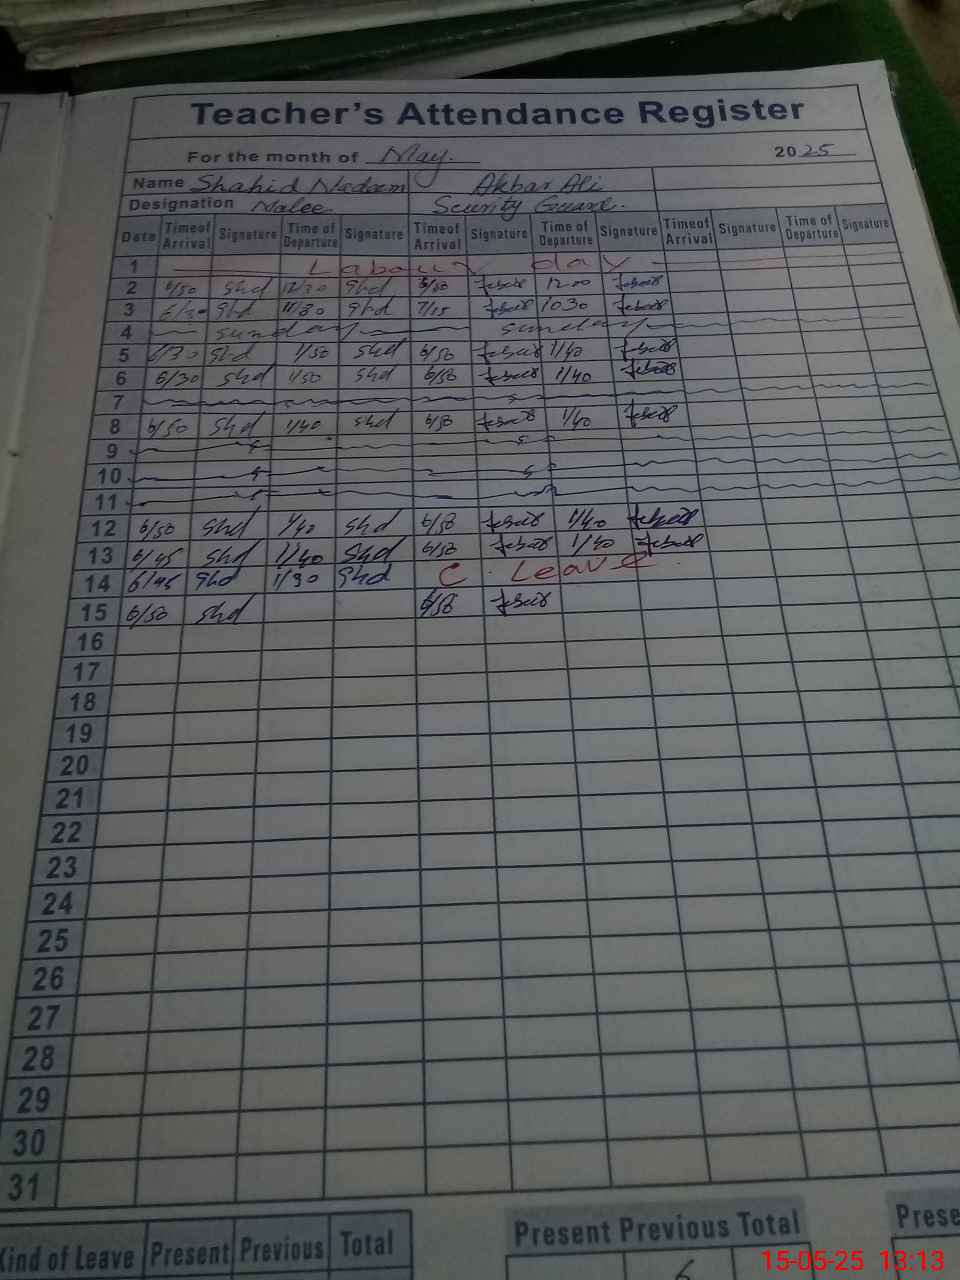 Teacher's Attendance Register
For the month of May. 2025
Name Shahid Nadeem Akbar Ali
Designation Nalee Scurity Guard.
Date Timeof Arrival Signature Time of Departure Signature Timeof Arrival Signature Time of Departure Signature Timeof Arrival Signature Time of Departure Signature
1 Labour day
2 6/50 Shd 12/30 Shd 6/50 12.00
3 6/30 Shd 11/30 Shd 7/15 1030
4 sunday sunday
5 6/30 Shd 1/50 Shd 6/50 1/40
6 6/30 Shd 1/50 Shd 6/50 1/40
7
8 6/50 Shd 1/40 Shd 6/50 1/40
9
10
11
12 6/50 Shd 1/40 Shd 6/50 1/40
13 6/45 Shd 1/40 Shd 6/50 1/40
14 6/45 Shd 1/30 Shd C. Leave
15 6/50 Shd 6/50
16
17
18
19
20
21
22
23
24
25
26
27
28
29
30
31
Kind of Leave Present Previous Total Present Previous Total Prese
6
15-05-25 13:13